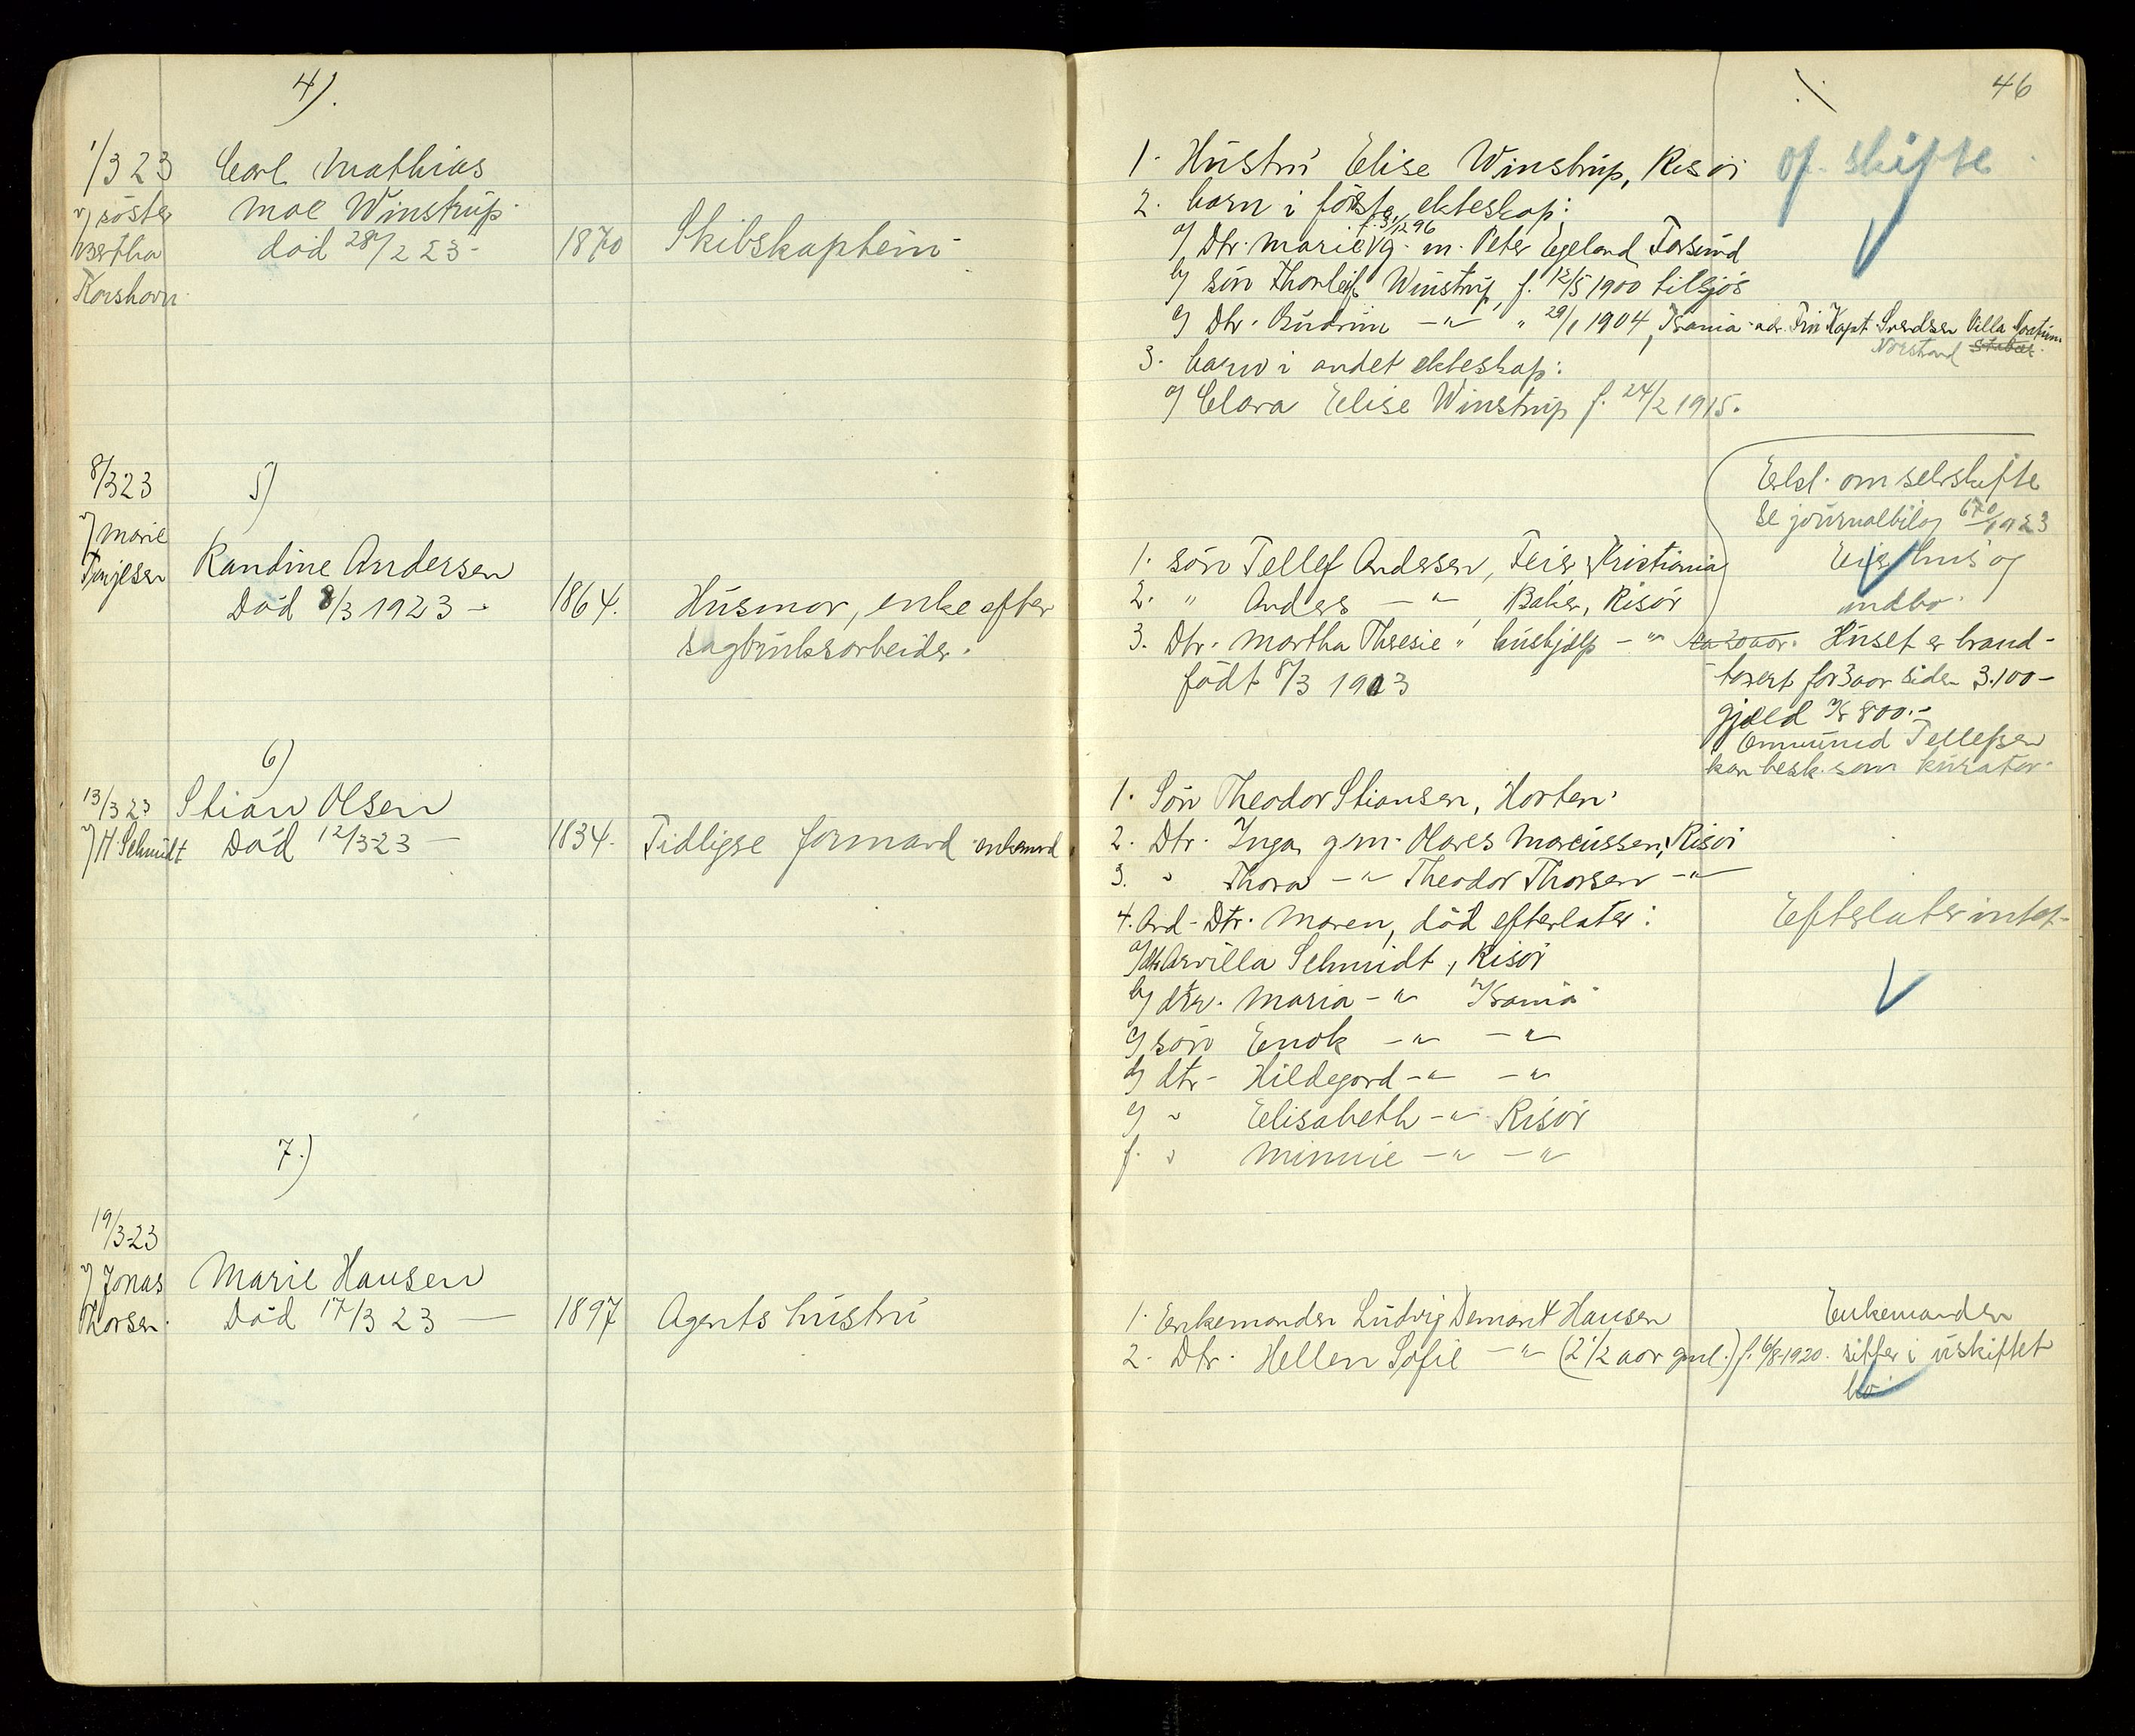 46
4).
1/3 23
v/ søster
Bertha
Korshavn
Carl Mathias
Moe Winstrup
død 28/2 23 -
1870
Skibskaptein
1. Hustru Elise Winstrup, Risør
2. barn i første ekteskap:
a/ Dtr. Marie f. 3/12 96 g. m. Peter Egeland Farsund
b/ søn Thorleif Winstrup, f. 12/5 1900 tilsjøs
c/ Dtr. Gudrun -"- " 29/1 1904, Kr.ania adr. Fru Kapt. Svendsen Villa
Nordstrand
3. barn i andet ekteskap:
a/ Clara Elise Winstrup f. 24/2 1915.
of. skifte
8/3 23
v/ Marie
Terjesen
5)
Randine Andersen
Død 8/3 1923 -
1864.
Husmor, enke efter
sagbruksarbeider.
1. søn Tellef Andersen, Feier, Kristiania
2. " Anders -"- Baker, Risør
3. Dtr. Martha Theresie " hushjelp -"- ca 20 aar.
født 8/3 1903
Erkl. om selvskifte
se journalbilag 670/1923
Eier hus og
indbo.
Huset er brand-
taxert for 3 aar siden 3.100-
gjæld Kr 800.-
Emmund Tellefsen
kan besk. som kurator.
13/3 23
v/ H. Schmidt
6)
Stian Olsen
Død 12/3 23 -
1834.
Tidligre formand enkemand
1. Søn Theodor Stiansen, Horten.
2. Dtr. Inga g. m. Olaves Marcussen, Risør
3. " Thora -"- Theodor Thorsen -"-
4. Avd. Dtr. Maren, død efterlater:
a/ dtr Arvilla Schmidt, Risør
b/ dtr. Maria -"- Kr.ania
c/ søn Enok -"- -"-
d/ dtr. Hildegard -"- -"-
e/ " Elisabeth -"- Risør
f. " Minnie -"- -"-
Efterlater intet.
19/3-23
v/ Jonas
Thorsen.
7.)
Marie Hansen
Død 17/3 23 -
1897
Agents hustru
1. Enkemanden Ludvig Demant Hansen
2. Dtr. Hellen Sofie -"- (2 1/2 aar gml.) f. 6/8-1920.
Enkemanden
sitter i uskiftet
bo